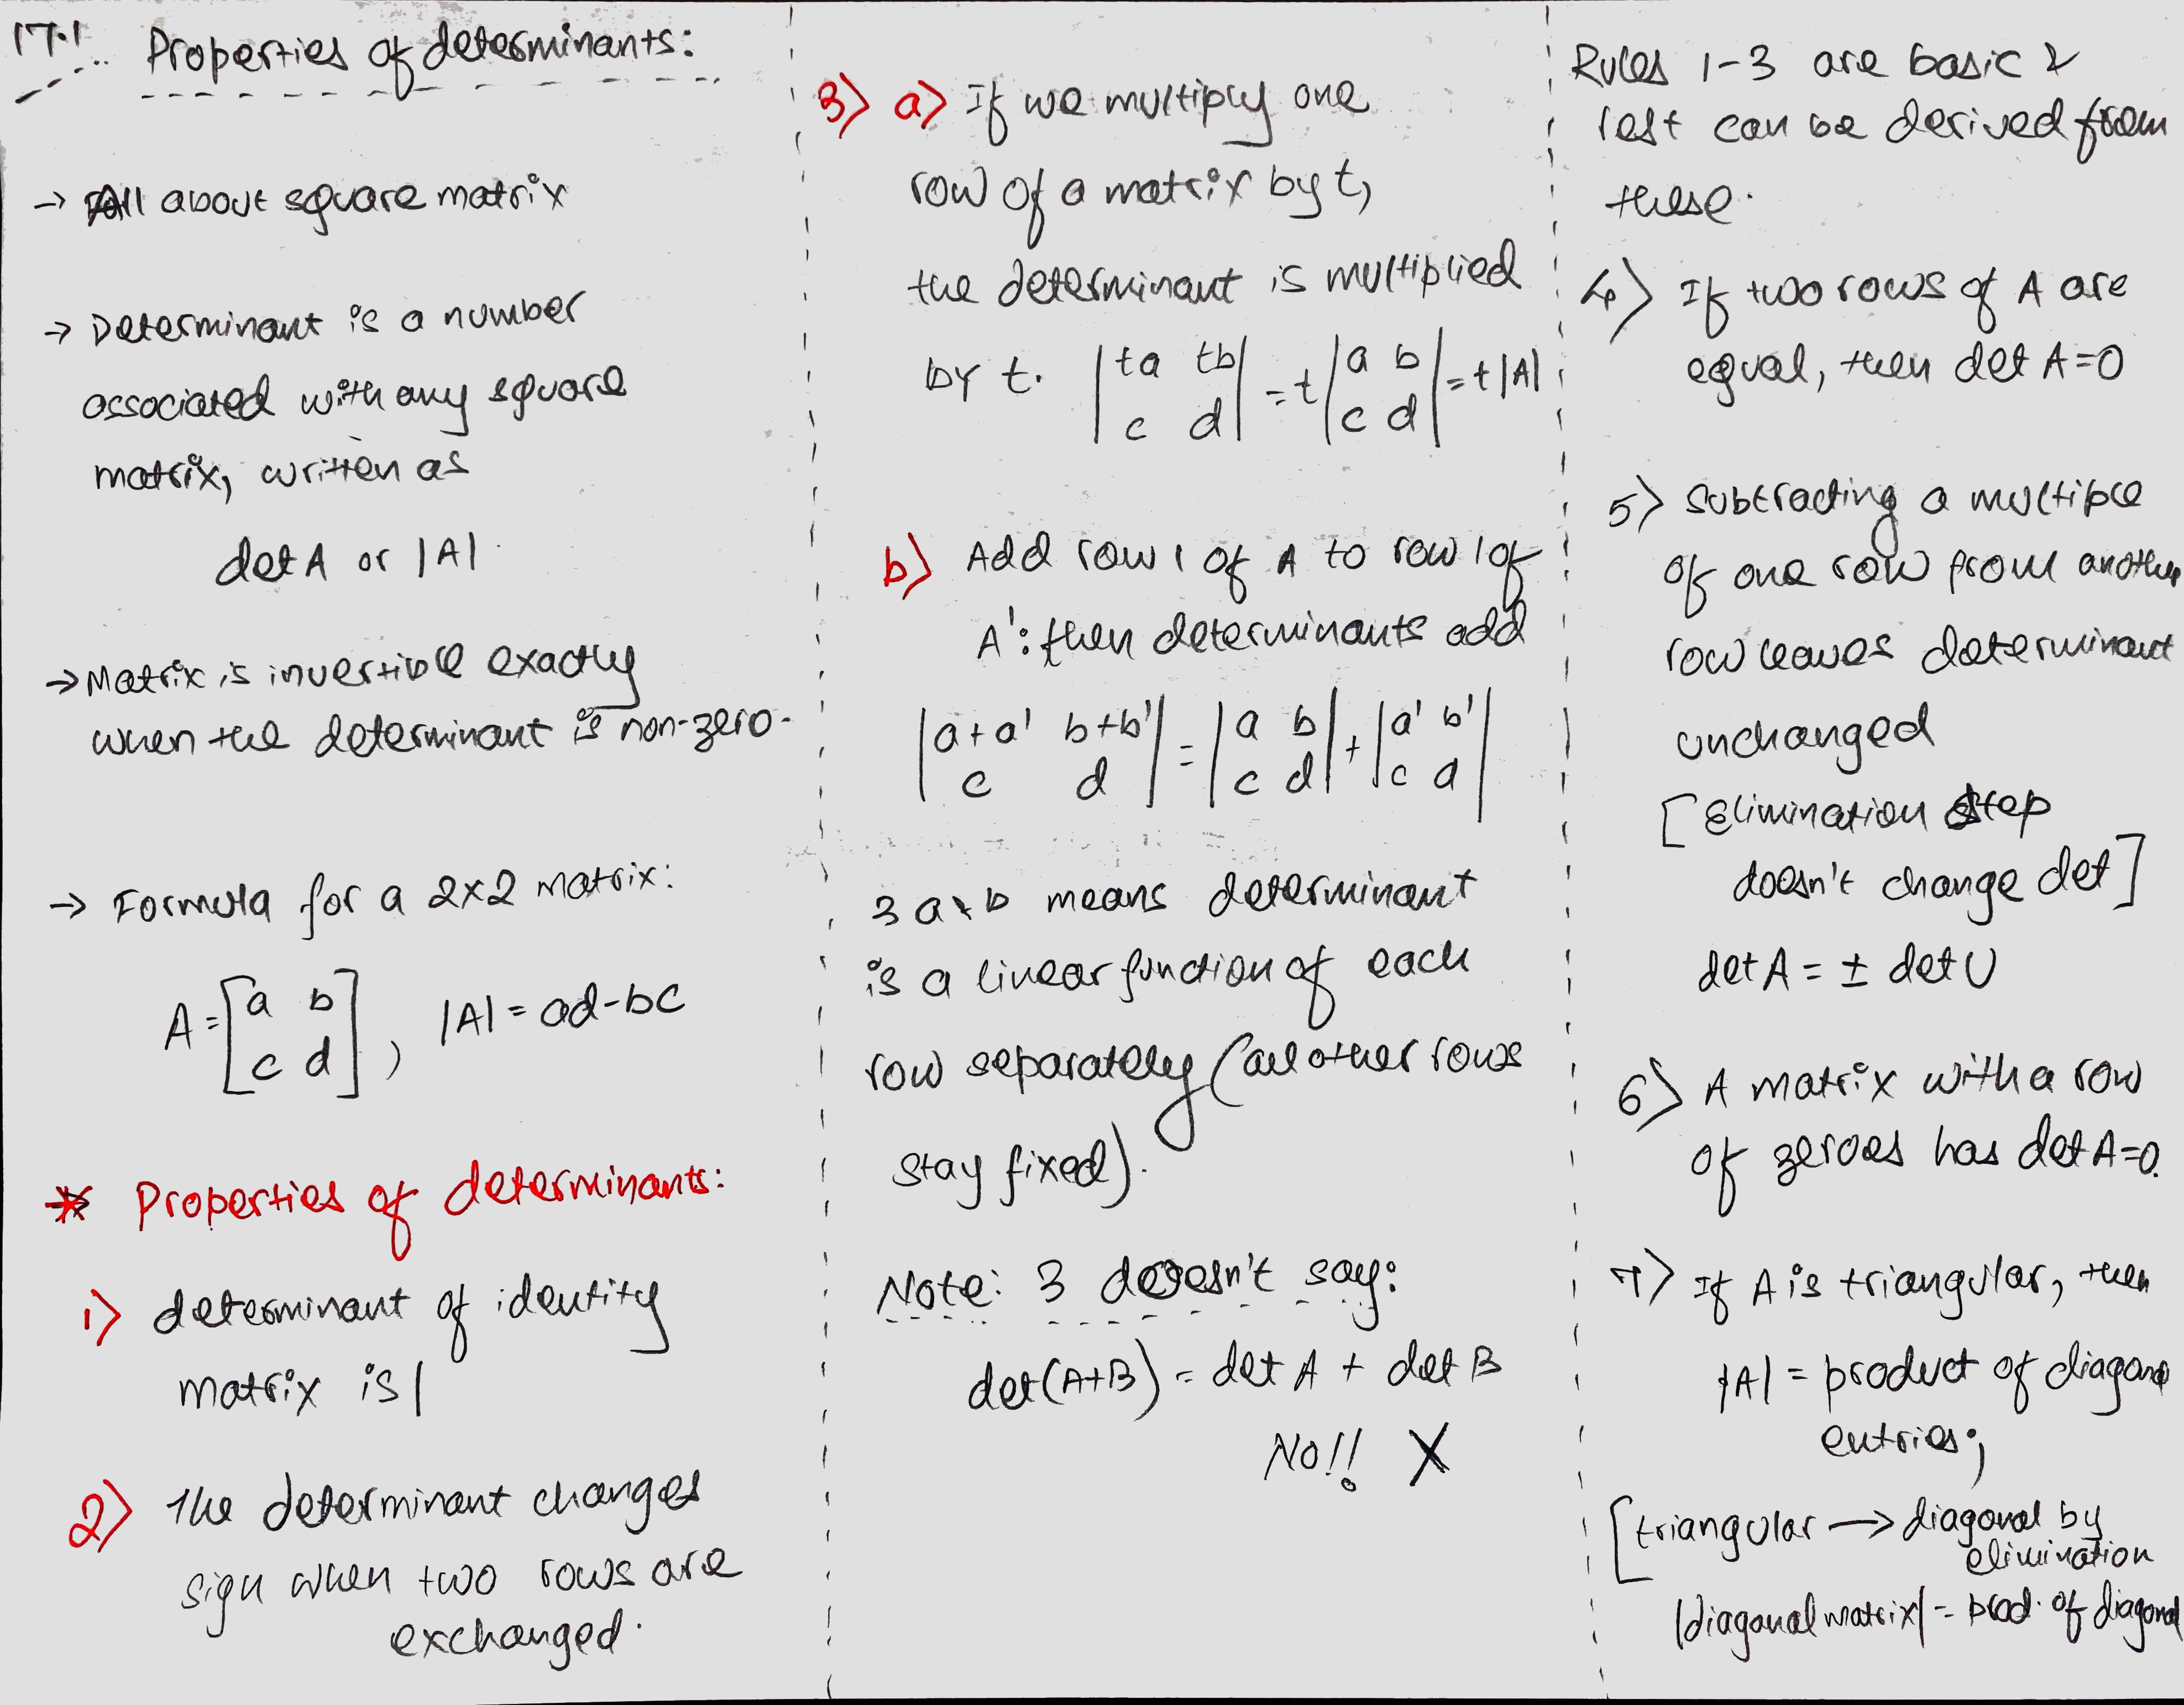 17.1. Properties of determinants:
→ All about square matrix
→ Determinant is a number
associated with any square
matrix, written as
det A or |A|.
→ Matrix is invertible exactly
when the determinant is non-zero.
→ Formula for a 2×2 matrix:
A = [a b
c d], |A| = ad-bc
* Properties of determinants:
1) determinant of identity
matrix is 1
2) The determinant changes
sign when two rows are
exchanged.
3) a) If we multiply one
row of a matrix by t,
the determinant is multiplied
by t. |ta tb| = t |a b| = t|A|
|c d| |c d|
b) Add row 1 of A to row 1 of
A': then determinants add
|a+a' b+b'| = |a b| + |a' b'|
|c d| |c d| |c d|
3 a & b means determinant
is a linear function of each
row separately (all other rows
stay fixed).
Note: 3 doesn't say:
det(A+B) = det A + det B
No!! X
Rules 1-3 are basic &
rest can be derived from
these.
4) If two rows of A are
equal, then det A=0
5) Subtracting a multiple
of one row from another
row leaves determinant
unchanged
[Elimination step
doesn't change det]
det A = ± det U
6) A matrix with a row
of zeroes has det A=0.
7) If A is triangular, then
|A| = product of diagonal
entries;
[triangular → diagonal by
elimination
|diagonal matrix| = prod. of diagonal